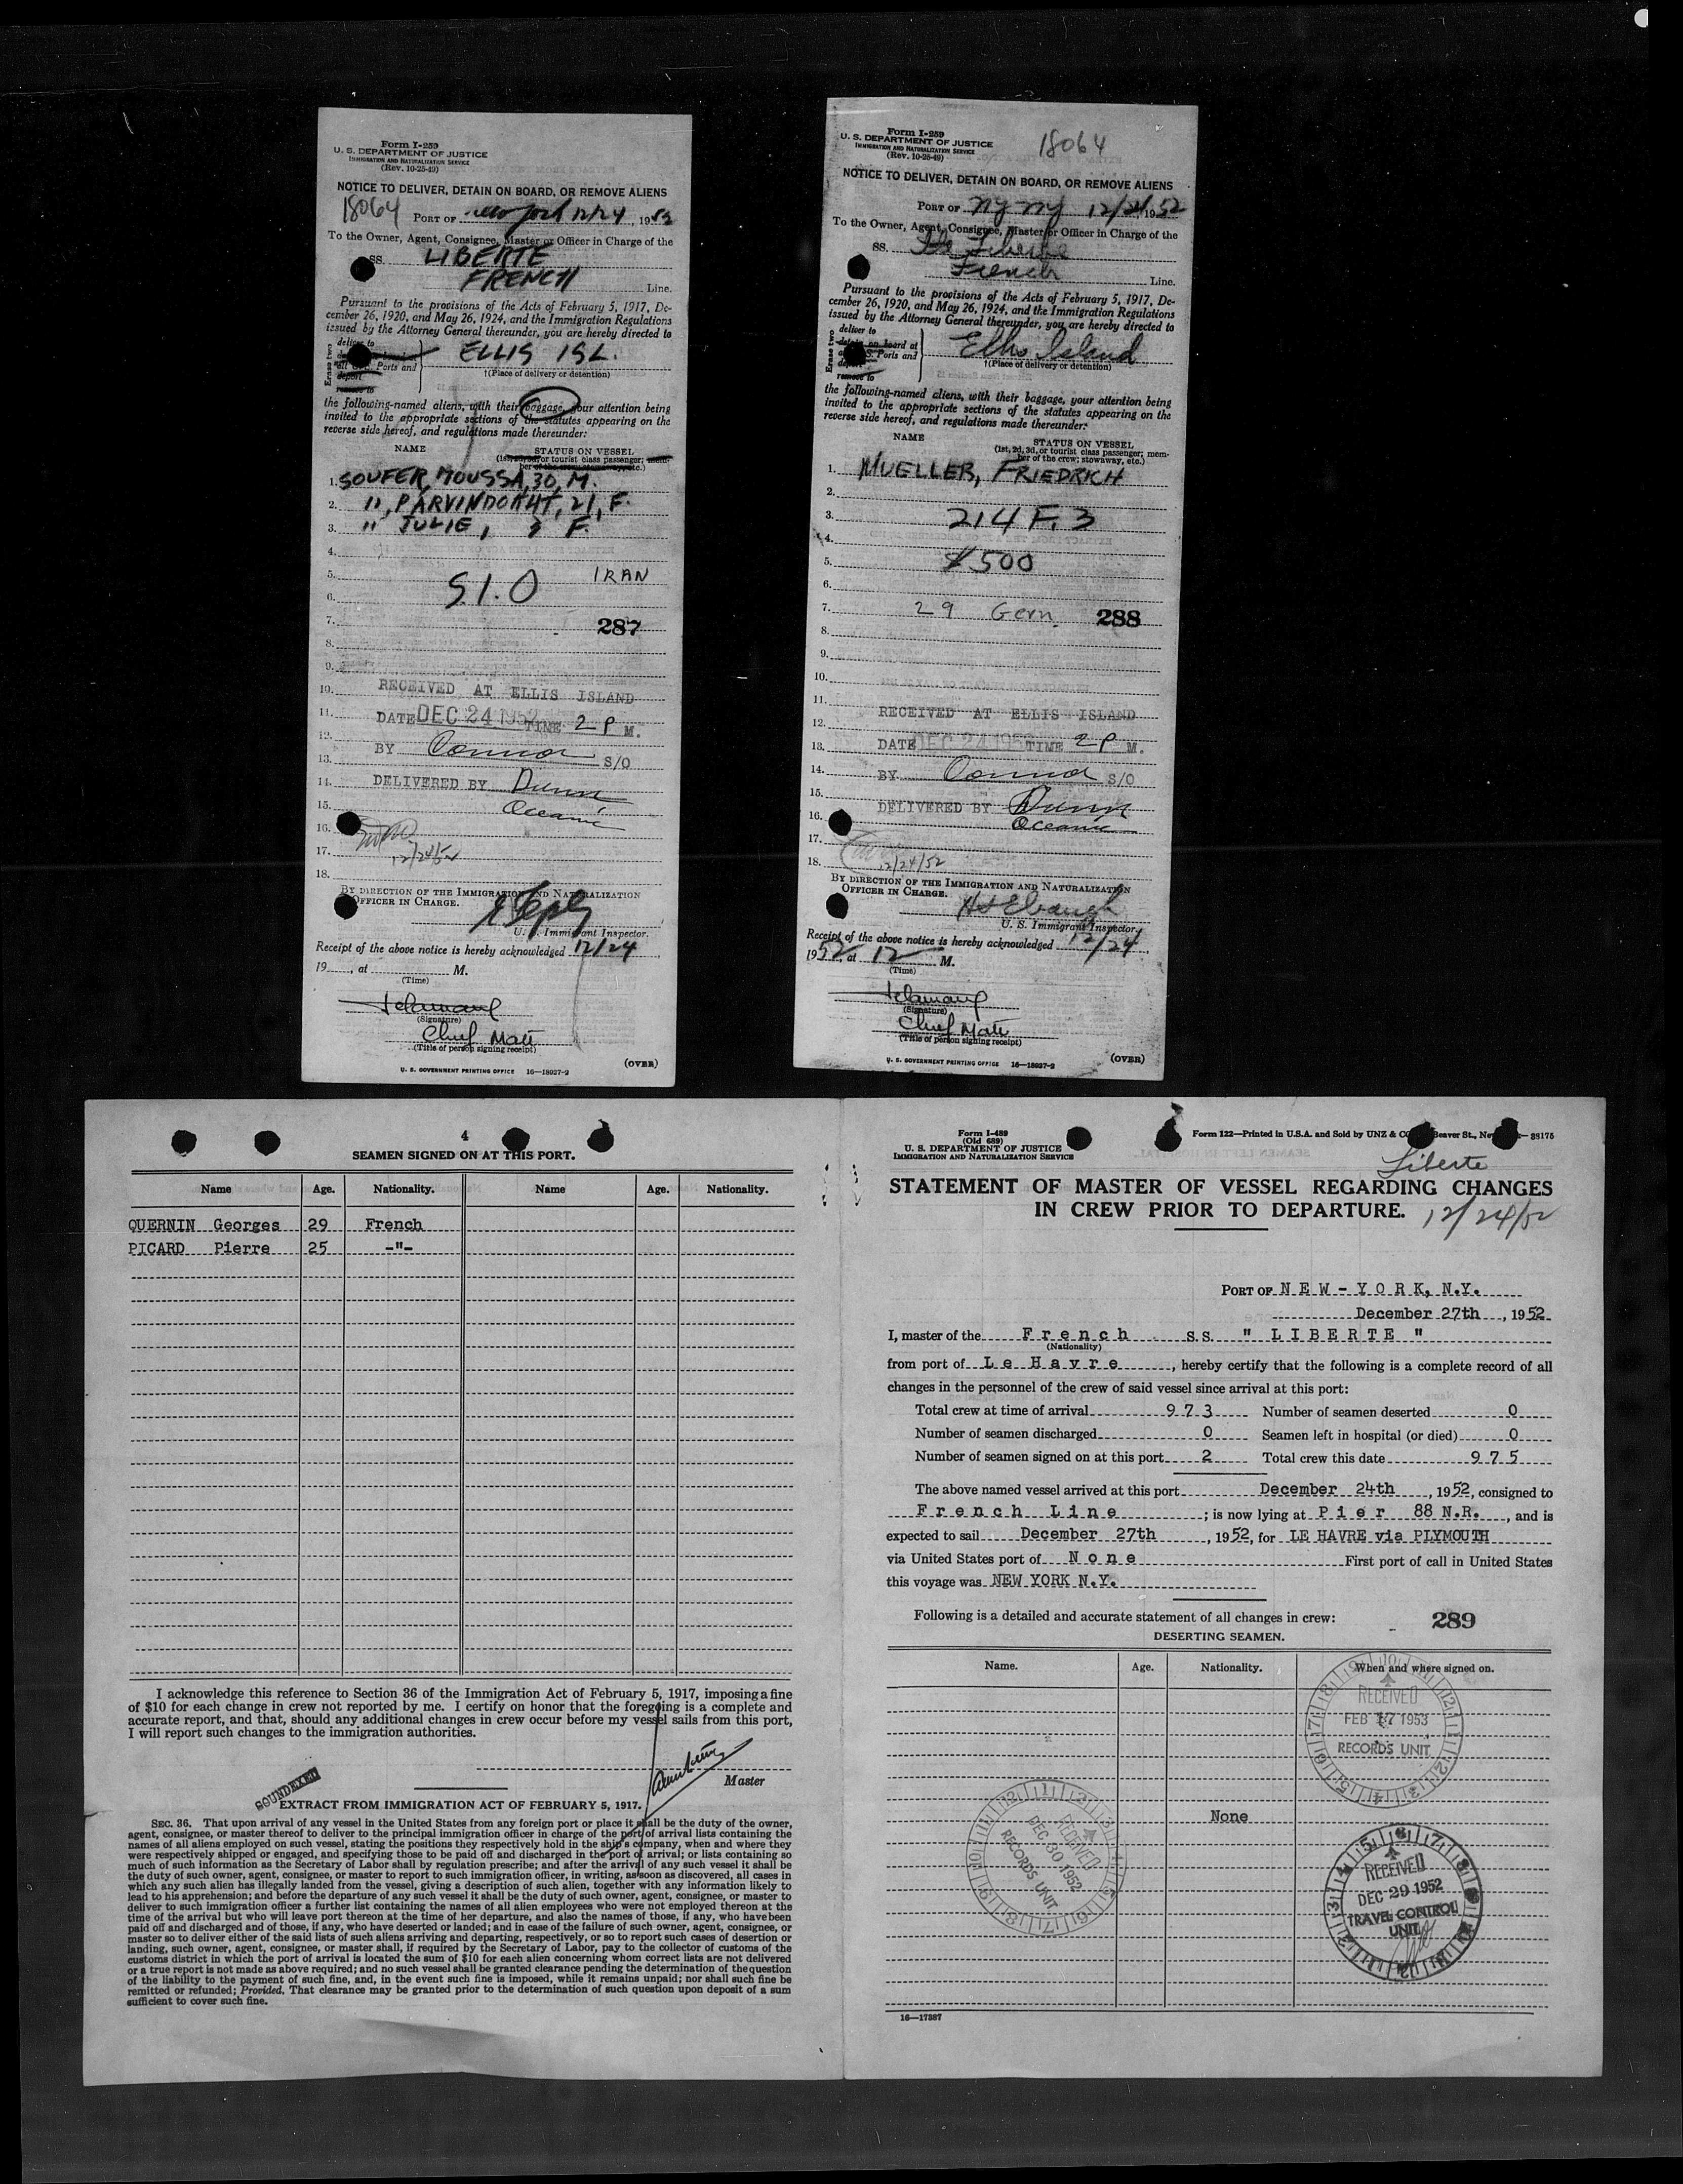 Form I-259
U. S. DEPARTMENT OF JUSTICE
IMMIGRATION AND NATURALIZATION SERVICE
(Rev. 10-25-49)
NOTICE TO DELIVER, DETAIN ON BOARD, OR REMOVE ALIENS
18064 PORT OF New York 12/24, 1952
To the Owner, Agent, Consignee, Master or Officer in Charge of the
SS. LIBERTE
FRENCH Line.
Pursuant to the provisions of the Acts of February 5, 1917, De-
cember 26, 1920, and May 26, 1924, and the Immigration Regulations
issued by the Attorney General thereunder, you are hereby directed to
Erase two
deliver to
all U. S. Ports and
deport
remove to
ELLIS ISL.
†(Place of delivery or detention)
the following-named aliens, with their baggage, your attention being
invited to the appropriate sections of the statutes appearing on the
reverse side hereof, and regulations made thereunder:
NAME STATUS ON VESSEL
(1st, 2d, 3d, or tourist class passenger; mem-
ber of the crew; stowaway, etc.)
1. SOUFER, MOUSSA, 30, M.
2. ", PARVINDOKHT, 21, F.
3. " JULIE, 3 F.
4.
5. IRAN
6. S.I.O
7. 287
8.
9.
10. RECEIVED AT ELLIS ISLAND
11. DATE DEC 24 1952 TIME 2 P M.
12.
BY Connor S/O
13.
14. DELIVERED BY Dunn
15. Oceanic
16.
17. 12/24/52
18.
BY DIRECTION OF THE IMMIGRATION AND NATURALIZATION
OFFICER IN CHARGE.
U. S. Immigrant Inspector.
Receipt of the above notice is hereby acknowledged 12/24,
19____, at ____ M.
(Time)
(Signature)
Chief Mate
(Title of person signing receipt)
(OVER)
U. S. GOVERNMENT PRINTING OFFICE 16—18027-2
Form I-259
U. S. DEPARTMENT OF JUSTICE
IMMIGRATION AND NATURALIZATION SERVICE
(Rev. 10-25-49)
18064
NOTICE TO DELIVER, DETAIN ON BOARD, OR REMOVE ALIENS
PORT OF NY NY 12/24/1952
To the Owner, Agent, Consignee, Master or Officer in Charge of the
SS. Liberte
French Line.
Pursuant to the provisions of the Acts of February 5, 1917, De-
cember 26, 1920, and May 26, 1924, and the Immigration Regulations
issued by the Attorney General thereunder, you are hereby directed to
Erase two
deliver to
detain on board at
all U. S. Ports and
remove to
Ellis Island
†(Place of delivery or detention)
the following-named aliens, with their baggage, your attention being
invited to the appropriate sections of the statutes appearing on the
reverse side hereof, and regulations made thereunder:
NAME STATUS ON VESSEL
(1st, 2d, 3d, or tourist class passenger; mem-
ber of the crew; stowaway, etc.)
1. MUELLER, FRIEDRICH
2.
3. 214 F. 3
4.
5. $500
6.
7. 29 Germ. 288
8.
9.
10.
11. RECEIVED AT ELLIS ISLAND
12.
13. DATE DEC 24 1952 TIME 2 P M.
14. BY Connor S/O
15.
DELIVERED BY Dunn
16. Oceanic
17.
18. 12/24/52
BY DIRECTION OF THE IMMIGRATION AND NATURALIZATION
OFFICER IN CHARGE.
U. S. Immigrant Inspector.
Receipt of the above notice is hereby acknowledged 12/24
1952, at 12 M.
(Time)
(Signature)
Chief Mate
(Title of person signing receipt)
(OVER)
U. S. GOVERNMENT PRINTING OFFICE 16—18027-2
4
SEAMEN SIGNED ON AT THIS PORT.
Name Age. Nationality. Name Age. Nationality.
QUERNIN Georges 29 French
PICARD Pierre 25 -"-
I acknowledge this reference to Section 36 of the Immigration Act of February 5, 1917, imposing a fine
of $10 for each change in crew not reported by me. I certify on honor that the foregoing is a complete and
accurate report, and that, should any additional changes in crew occur before my vessel sails from this port,
I will report such changes to the immigration authorities.
Master
SOUNDEXED
EXTRACT FROM IMMIGRATION ACT OF FEBRUARY 5, 1917.
SEC. 36. That upon arrival of any vessel in the United States from any foreign port or place it shall be the duty of the owner,
agent, consignee, or master thereof to deliver to the principal immigration officer in charge of the port of arrival lists containing the
names of all aliens employed on such vessel, stating the positions they respectively hold in the ship's company, when and where they
were respectively shipped or engaged, and specifying those to be paid off and discharged in the port of arrival; or lists containing so
much of such information as the Secretary of Labor shall by regulation prescribe; and after the arrival of any such vessel it shall be
the duty of such owner, agent, consignee, or master to report to such immigration officer, in writing, as soon as discovered, all cases in
which any such alien has illegally landed from the vessel, giving a description of such alien, together with any information likely to
lead to his apprehension; and before the departure of any such vessel it shall be the duty of such owner, agent, consignee, or master to
deliver to such immigration officer a further list containing the names of all alien employees who were not employed thereon at the
time of the arrival but who will leave port thereon at the time of her departure, and also the names of those, if any, who have been
paid off and discharged and of those, if any, who have deserted or landed; and in case of the failure of such owner, agent, consignee, or
master so to deliver either of the said lists of such aliens arriving and departing, respectively, or so to report such cases of desertion or
landing, such owner, agent, consignee, or master shall, if required by the Secretary of Labor, pay to the collector of customs of the
customs district in which the port of arrival is located the sum of $10 for each alien concerning whom correct lists are not delivered
or a true report is not made as above required; and no such vessel shall be granted clearance pending the determination of the question
of the liability to the payment of such fine, and, in the event such fine is imposed, while it remains unpaid; nor shall such fine be
remitted or refunded; Provided, That clearance may be granted prior to the determination of such question upon deposit of a sum
sufficient to cover such fine.
Form I-489
(Old 689)
U. S. DEPARTMENT OF JUSTICE
IMMIGRATION AND NATURALIZATION SERVICE
Form 122—Printed in U.S.A. and Sold by UNZ & CO. Beaver St., New 38175
Liberte
STATEMENT OF MASTER OF VESSEL REGARDING CHANGES
IN CREW PRIOR TO DEPARTURE. 12/24/52
PORT OF NEW-YORK, N.Y.
December 27th, 1952
I, master of the French S.S. " LIBERTE "
(Nationality)
from port of Le Havre, hereby certify that the following is a complete record of all
changes in the personnel of the crew of said vessel since arrival at this port:
Total crew at time of arrival 973 Number of seamen deserted 0
Number of seamen discharged 0 Seamen left in hospital (or died) 0
Number of seamen signed on at this port 2 Total crew this date 975
The above named vessel arrived at this port December 24th, 1952, consigned to
French Line; is now lying at Pier 88 N.R., and is
expected to sail December 27th, 1952, for LE HAVRE via PLYMOUTH
via United States port of None First port of call in United States
this voyage was NEW YORK N.Y.
Following is a detailed and accurate statement of all changes in crew: 289
DESERTING SEAMEN.
Name. Age. Nationality. When and where signed on.
RECEIVED
FEB 17 1953
RECORDS UNIT
None
RECEIVED
DEC 30 1952
RECORDS UNIT
RECEIVED
DEC 29 1952
TRAVEL CONTROL
UNIT
16—17387